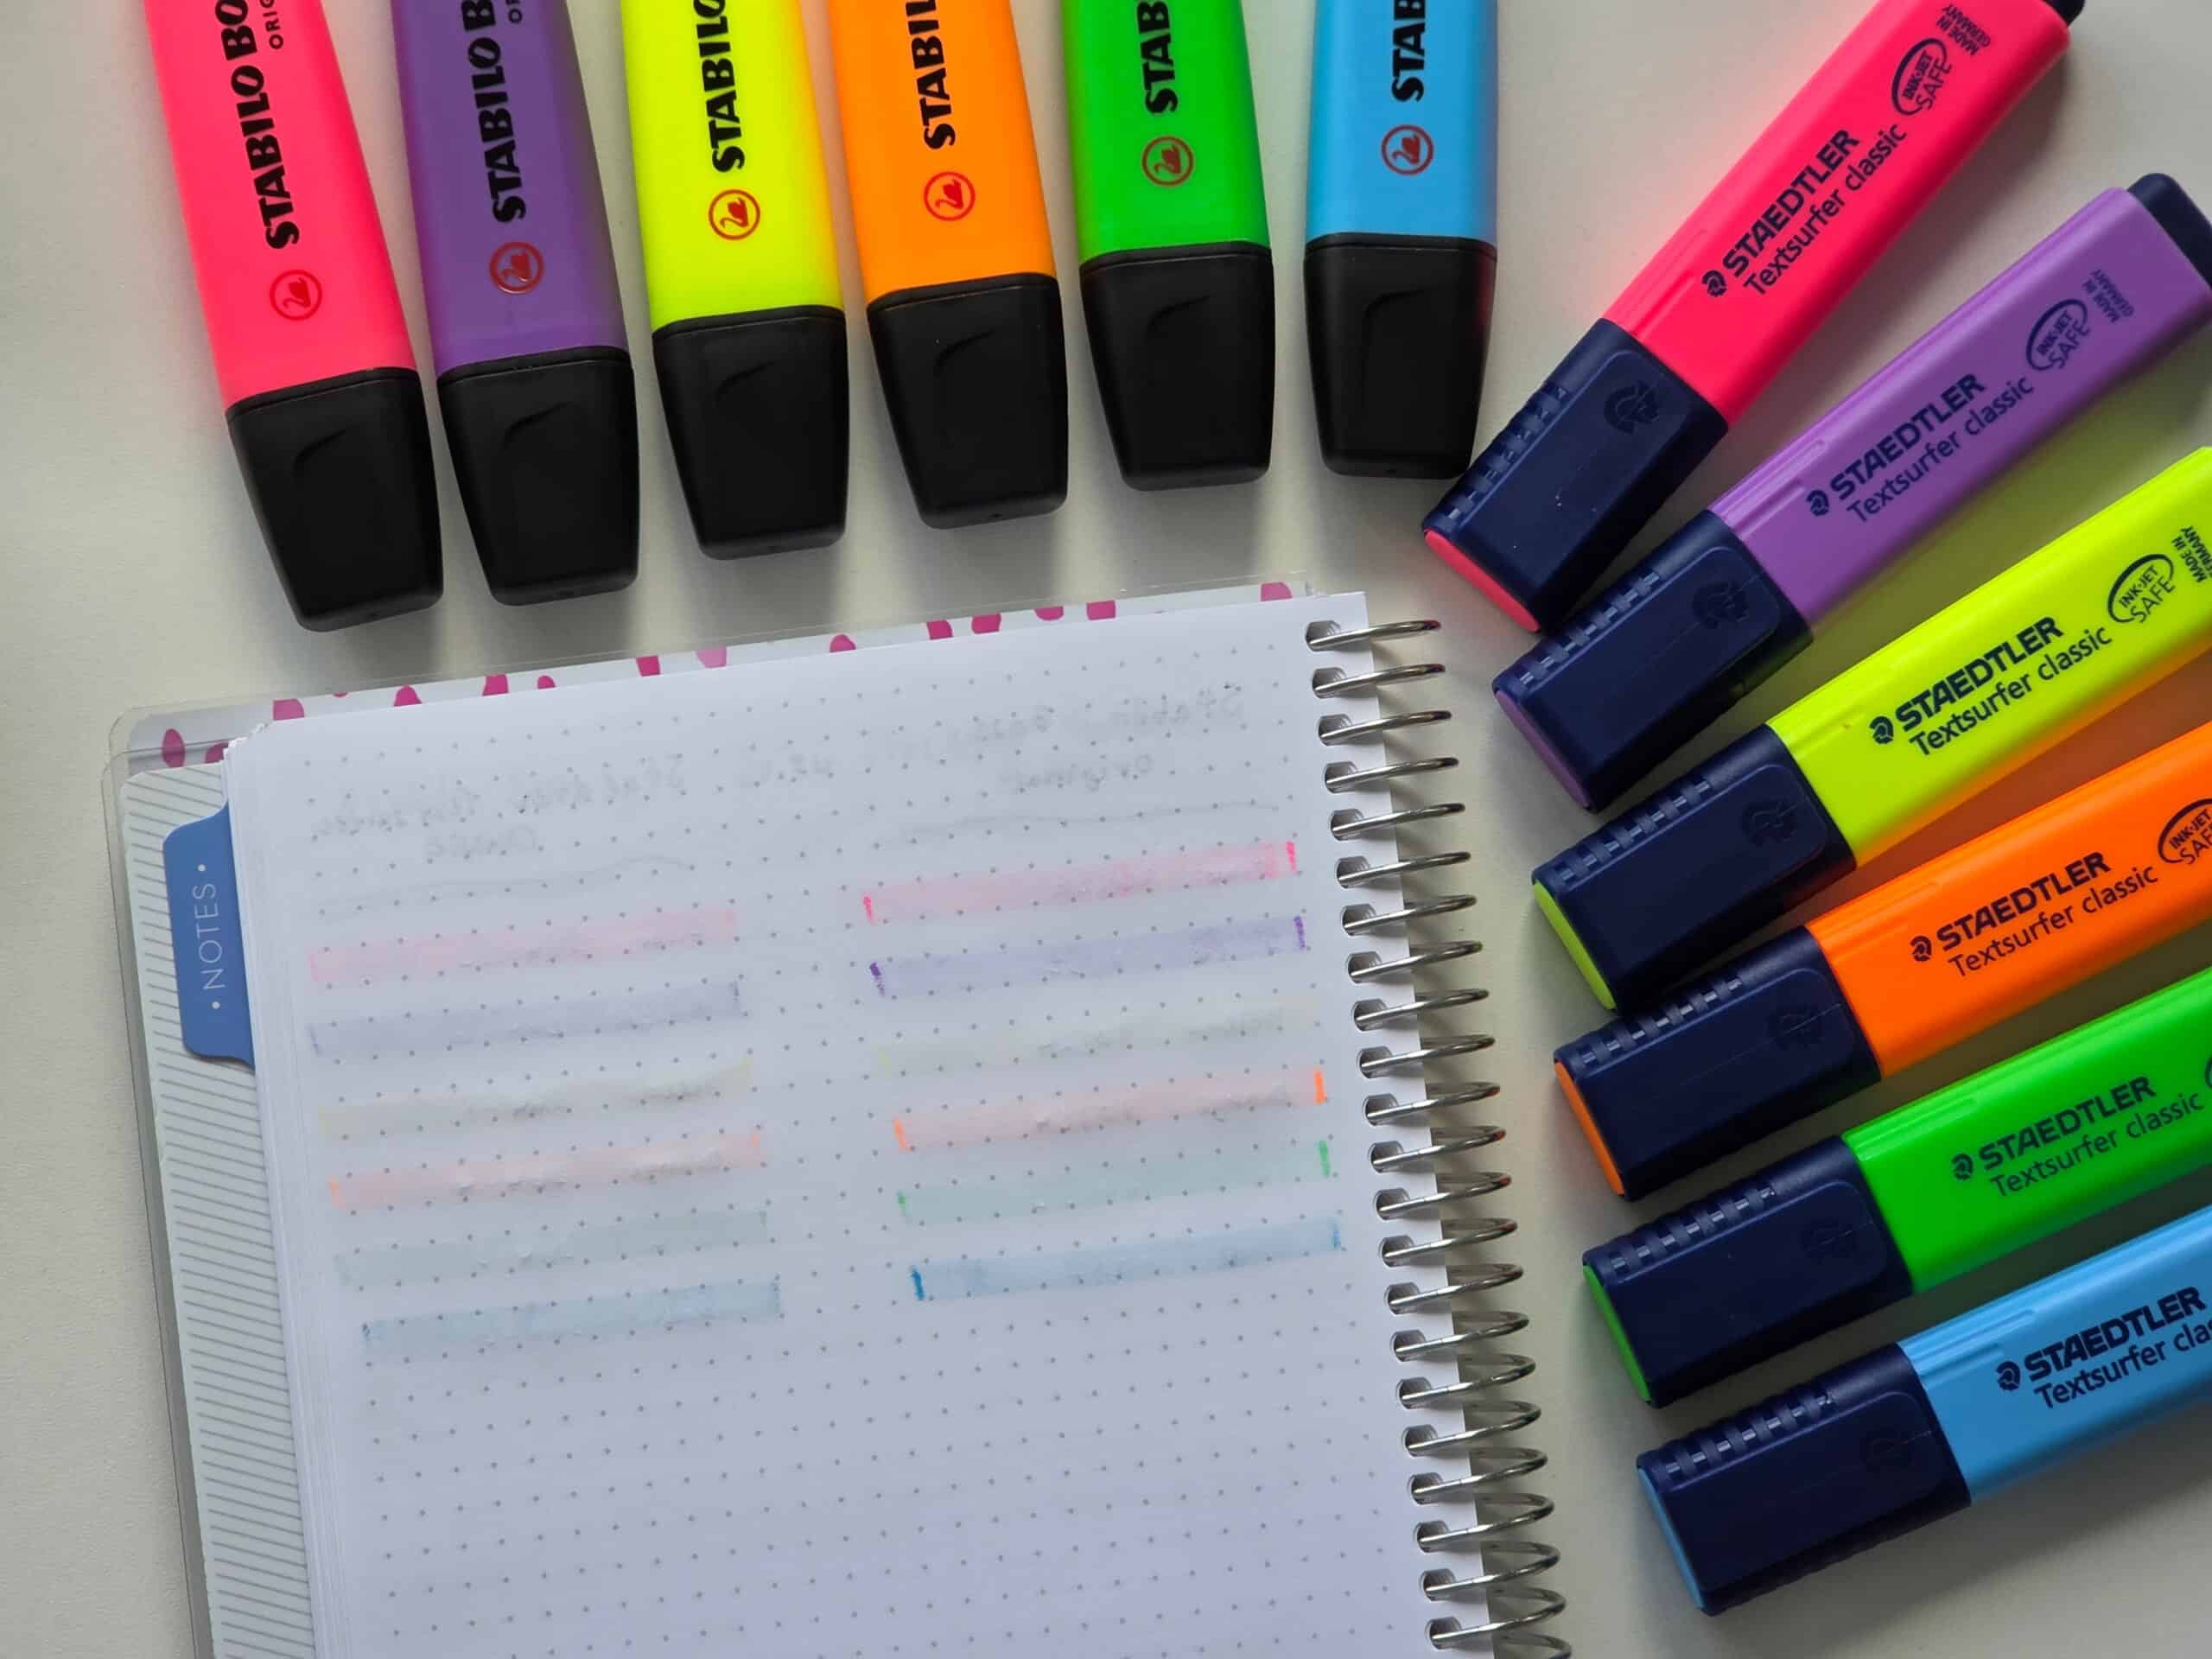 STABILO BO
ORIG
STABILO B
OR
STABILO
STABIL
STAB
STAB
STAEDTLER
Textsurfer classic
INK-JET
SAFE
MADE IN
GERMANY
STAEDTLER
Textsurfer classic
INK-JET
SAFE
MADE IN
GERMANY
STAEDTLER
Textsurfer classic
INK-JET
SAFE
MADE IN
GERMANY
STAEDTLER
Textsurfer classic
INK-JET
SAF
STAEDTLER
Textsurfer classic
STAEDTLER
Textsurfer clas
• NOTES •
Stabilo Boss
original